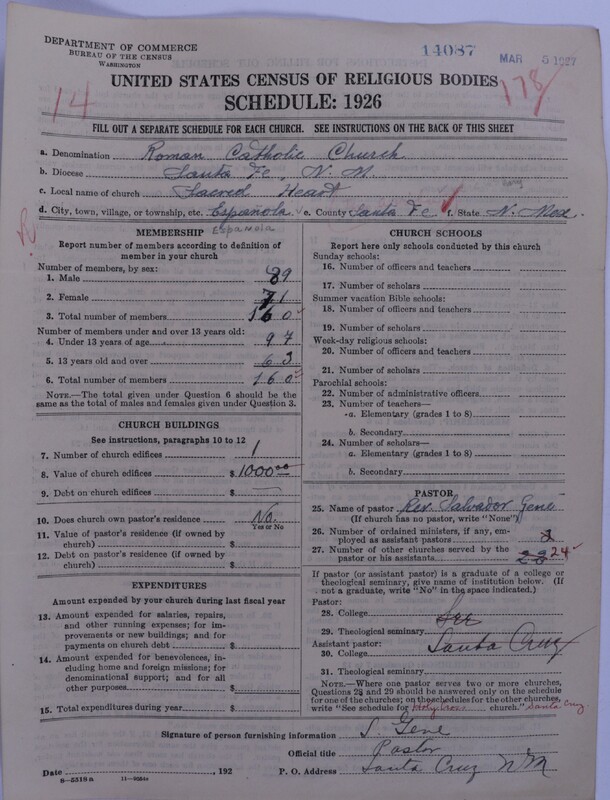 DEPARTMENT OF COMMERCE
BUREAU OF THE CENSUS
WASHINGTON
14087
MAR 5 1927
14
178
UNITED STATES CENSUS OF RELIGIOUS BODIES
SCHEDULE: 1926
FILL OUT A SEPARATE SCHEDULE FOR EACH CHURCH. SEE INSTRUCTIONS ON THE BACK OF THIS SHEET
a. Denomination Roman Catholic Church
b. Diocese Santa Fe, N. M.
c. Local name of church Sacred Heart
d. City, town, village, or township, etc. Española e. County Santa Fe f. State N. Mex.
Espanola
MEMBERSHIP
Report number of members according to definition of
member in your church
Number of members, by sex:
1. Male 89
2. Female 71
3. Total number of members 160
Number of members under and over 13 years old:
4. Under 13 years of age 97
5. 13 years old and over 63
6. Total number of members 160
NOTE.—The total given under Question 6 should be
the same as the total of males and females given under Question 3.
CHURCH BUILDINGS
See instructions, paragraphs 10 to 12
7. Number of church edifices 1
8. Value of church edifices $ 1000.00
9. Debt on church edifices $
10. Does church own pastor's residence No
Yes or No
11. Value of pastor's residence (if owned by
church) $
12. Debt on pastor's residence (if owned by
church) $
EXPENDITURES
Amount expended by your church during last fiscal year
13. Amount expended for salaries, repairs,
and other running expenses; for im-
provements or new buildings; and for
payments on church debt $
14. Amount expended for benevolences, in-
cluding home and foreign missions; for
denominational support; and for all
other purposes $
15. Total expenditures during year $
CHURCH SCHOOLS
Report here only schools conducted by this church
Sunday schools:
16. Number of officers and teachers
17. Number of scholars
Summer vacation Bible schools:
18. Number of officers and teachers
19. Number of scholars
Week-day religious schools:
20. Number of officers and teachers
21. Number of scholars
Parochial schools:
22. Number of administrative officers
23. Number of teachers—
a. Elementary (grades 1 to 8)
b. Secondary
24. Number of scholars—
a. Elementary (grades 1 to 8)
b. Secondary
PASTOR
25. Name of pastor Rev. Salvador Gene
(If church has no pastor, write "None")
26. Number of ordained ministers, if any, em-
ployed as assistant pastors
27. Number of other churches served by the
pastor or his assistants 24
If pastor (or assistant pastor) is a graduate of a college or
theological seminary, give name of institution below. (If
not a graduate, write "No" in the space indicated.)
Pastor:
28. College See
29. Theological seminary
Assistant pastor: Santa Cruz
30. College
31. Theological seminary
NOTE.—Where one pastor serves two or more churches,
Questions 28 and 29 should be answered only on the schedule
for one of the churches; on the schedules for the other churches,
write "See schedule for Holy Cross church." Santa Cruz
Signature of person furnishing information S. Gene
Official title Pastor
Date , 192 P. O. Address Santa Cruz N M
8—5518a